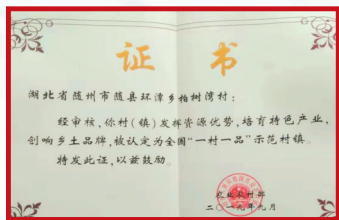 证 书
湖北省随州市随县环潭乡柏树湾村：
经审核，你村（镇）发挥资源优势，培育特色产业，
创响乡土品牌，被认定为全国“一村一品”示范村镇。
特发此证，以兹鼓励。
农业农村部
二〇一九年九月